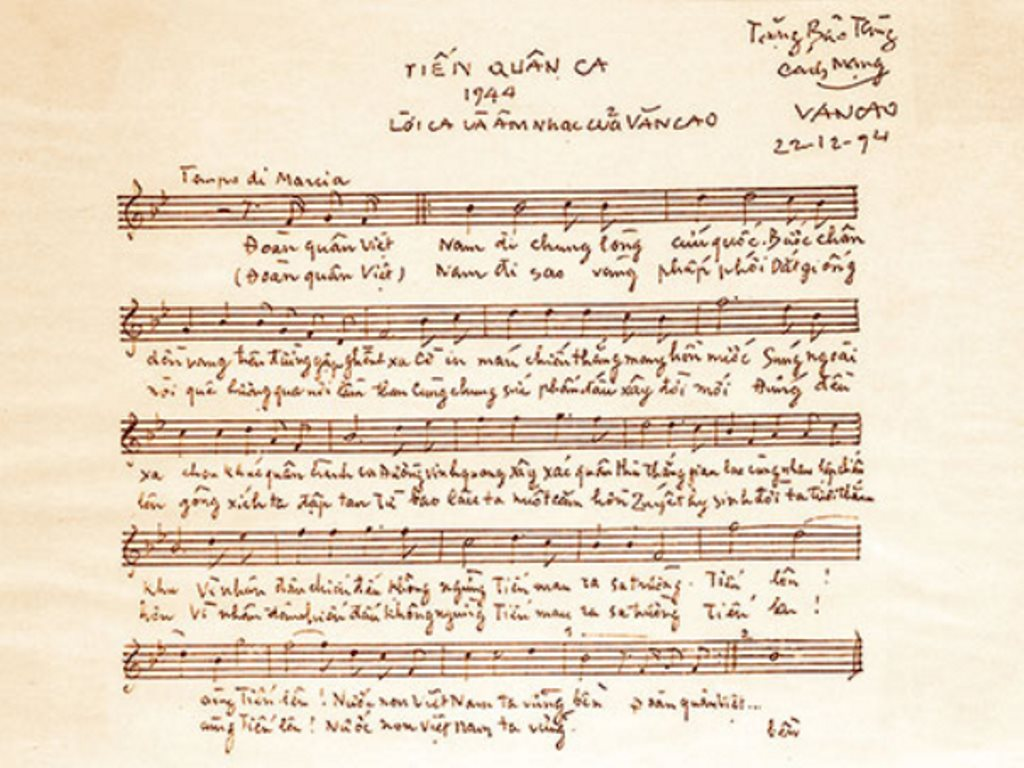 Tặng Bảo Tàng
Cách Mạng
VANCAO
22-12-94
TIẾN QUÂN CA
1944
LỜI CA VÀ ÂM NHẠC CỦA VĂN CAO
Tempo di Marcia
Đoàn quân Việt Nam đi chung lòng cứu quốc. Bước chân
(Đoàn quân Việt) Nam đi sao vàng phấp phới Dắt giống
dồn vang trên đường gập ghềnh xa Cờ in máu chiến thắng mang hồn nước Súng ngoài
nòi quê hương qua nơi lầm than Cùng chung sức phấn đấu xây đời mới Đứng đều
xa chen khúc quân hành ca Đường vinh quang xây xác quân thù Thắng gian lao cùng nhau lập chiến
lên gông xích ta đập tan Từ bao lâu ta nuốt căm hờn Quyết hy sinh đời ta tươi thắm
khu Vì nhân dân chiến đấu không ngừng Tiến mau ra sa trường. Tiến lên !
hơn Vì nhân dân chiến đấu không ngừng Tiến mau ra sa trường Tiến lên !
cùng Tiến lên ! Nước non Việt Nam ta vững bền Đoàn quân Việt...
cùng Tiến lên ! Nước non Việt Nam ta vững
bền